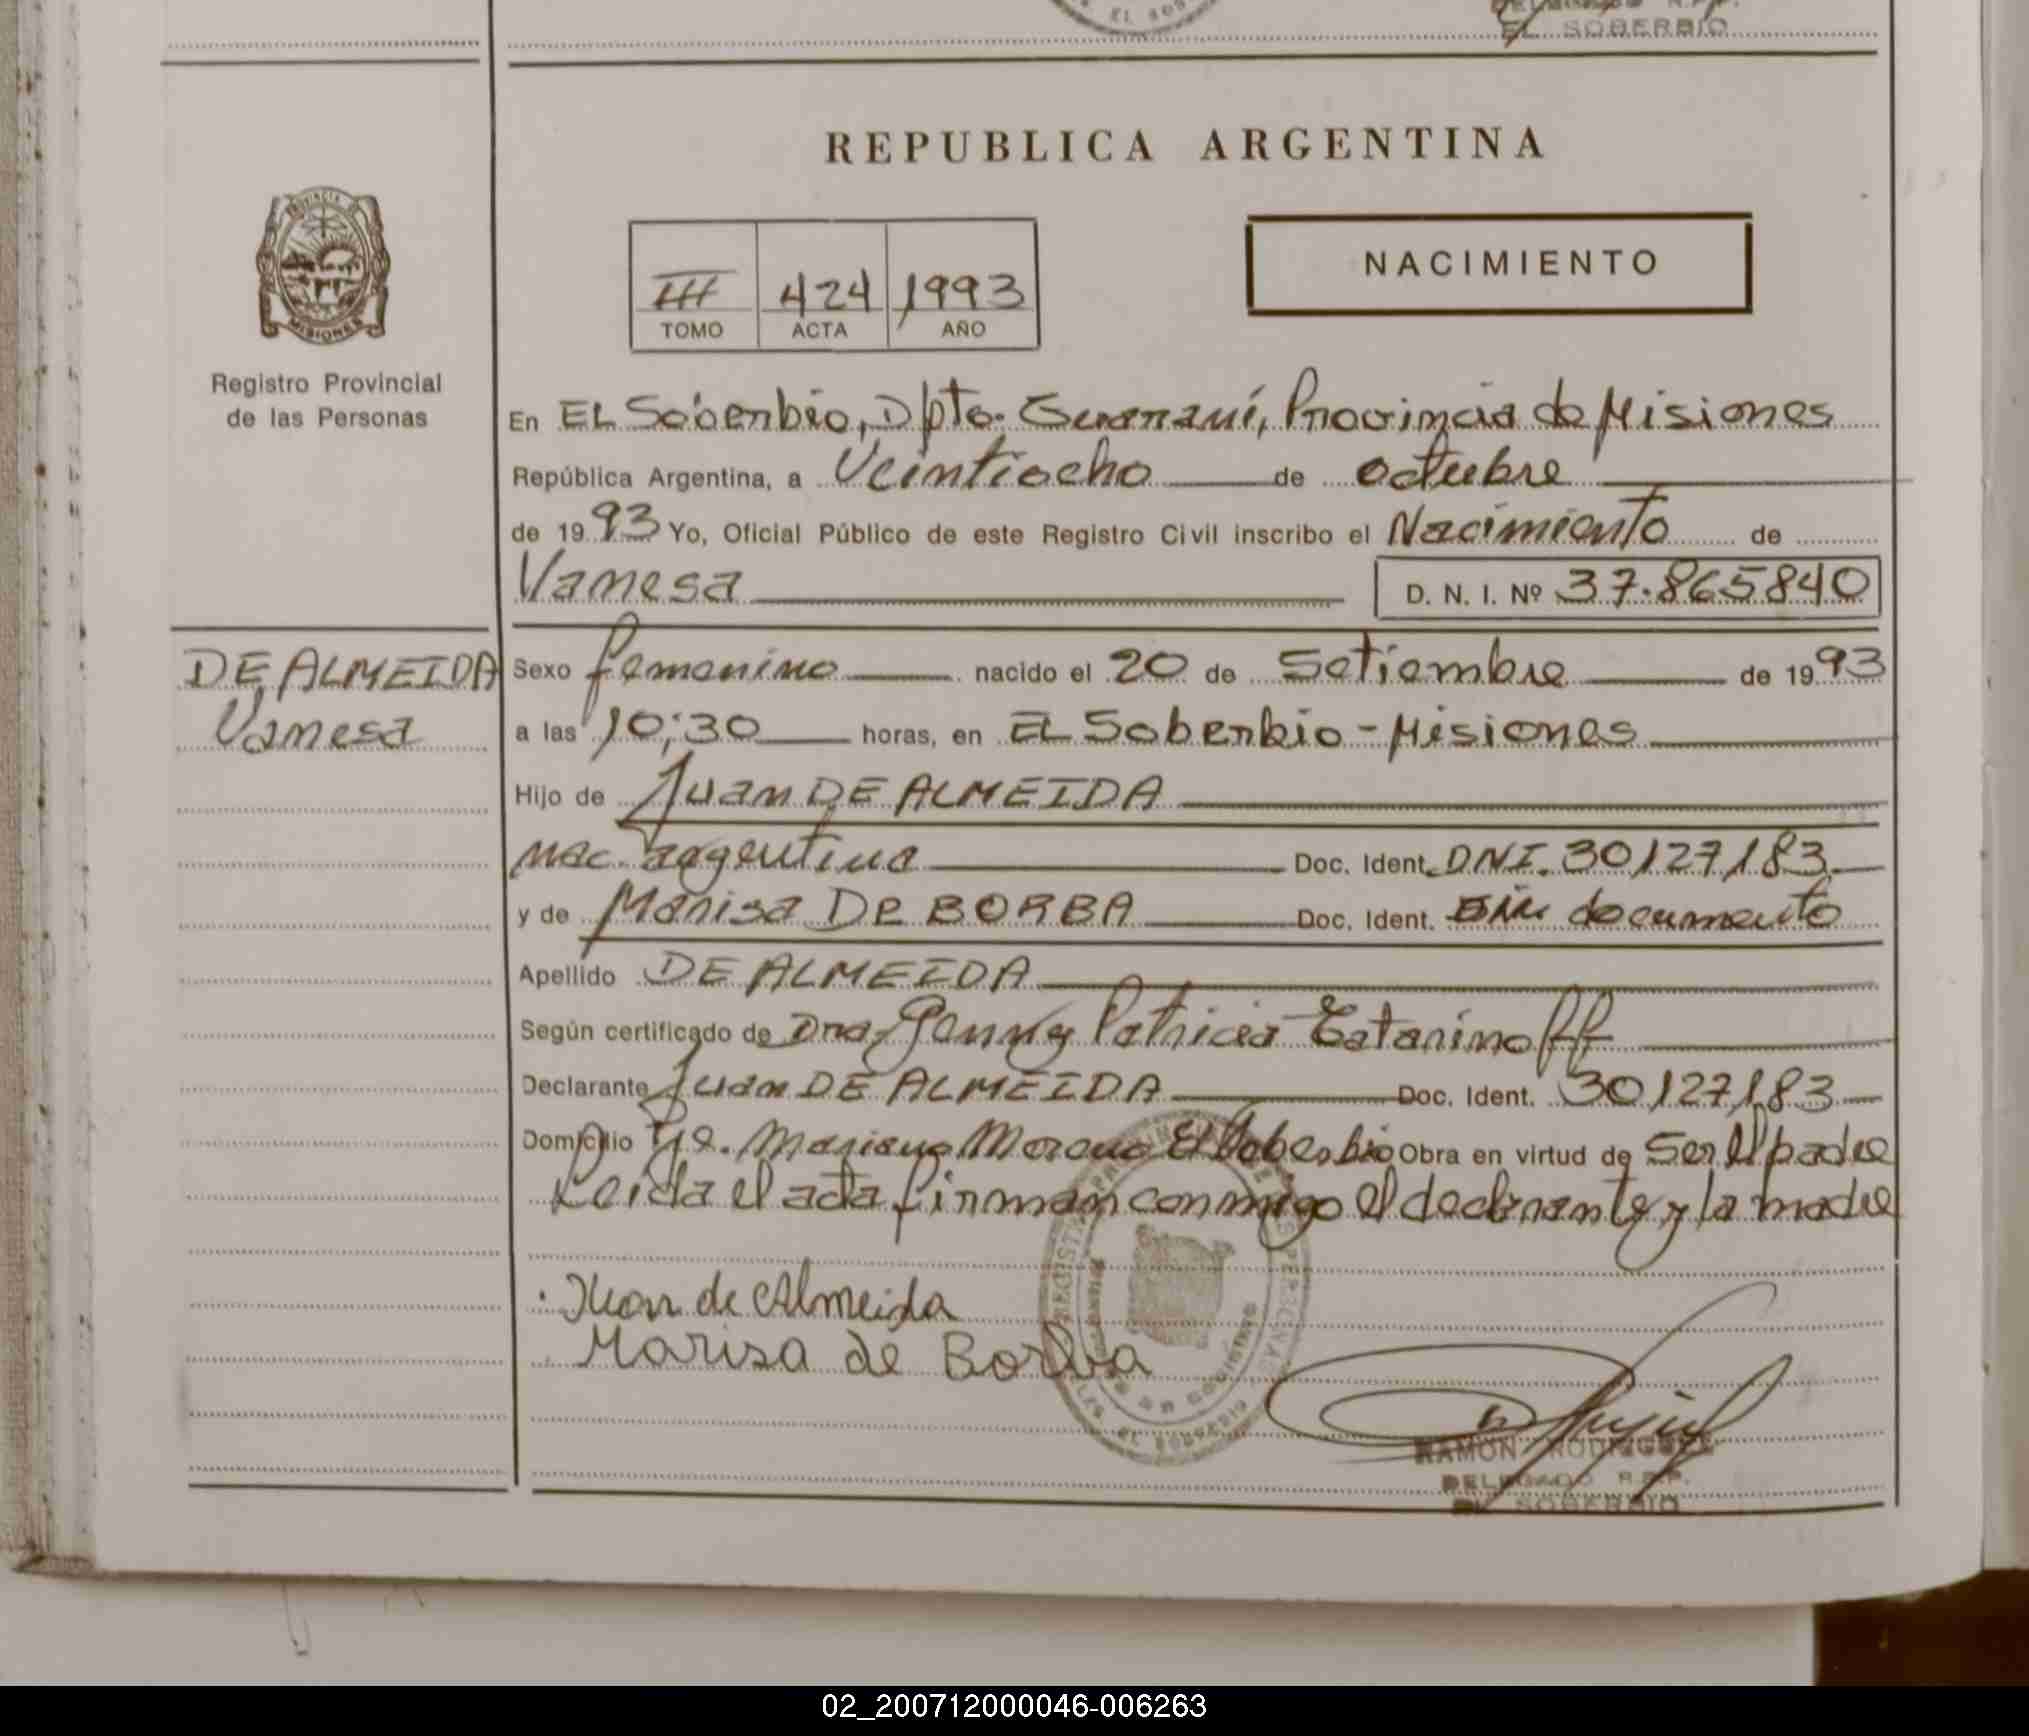 EL SOBERBIO
REPUBLICA ARGENTINA
PROVINCIA DE
MISIONES
Registro Provincial
de las Personas
NACIMIENTO
III 424 1993
TOMO ACTA AÑO
En EL Soberbio, Dpto. Guaraní, Provincia de Misiones
República Argentina, a Veintiocho de octubre
de 1993 Yo, Oficial Público de este Registro Civil inscribo el Nacimiento de
Vanesa D. N. I. Nº 37.865840
DE ALMEIDA
Vanesa
Sexo femenino nacido el 20 de Setiembre de 1993
a las 10:30 horas, en EL Soberbio - Misiones
Hijo de Juan DE ALMEIDA
nac. argentina Doc. Ident. DNI. 30127183
y de Marisa DE BORBA Doc. Ident. Sin documento
Apellido DE ALMEIDA
Según certificado de Dra. Genny Patricia Tatarinoff
Declarante Juan DE ALMEIDA Doc. Ident. 30127183
Domicilio Mariano Moreno El Soberbio Obra en virtud de Ser el padre
Leida el acta firman conmigo el declarante y la madre
Juan de Almeida
Marisa de Borba
RAMON RODRIGUEZ
DELEGADO R.P.P.
EL SOBERBIO
02_200712000046-006263